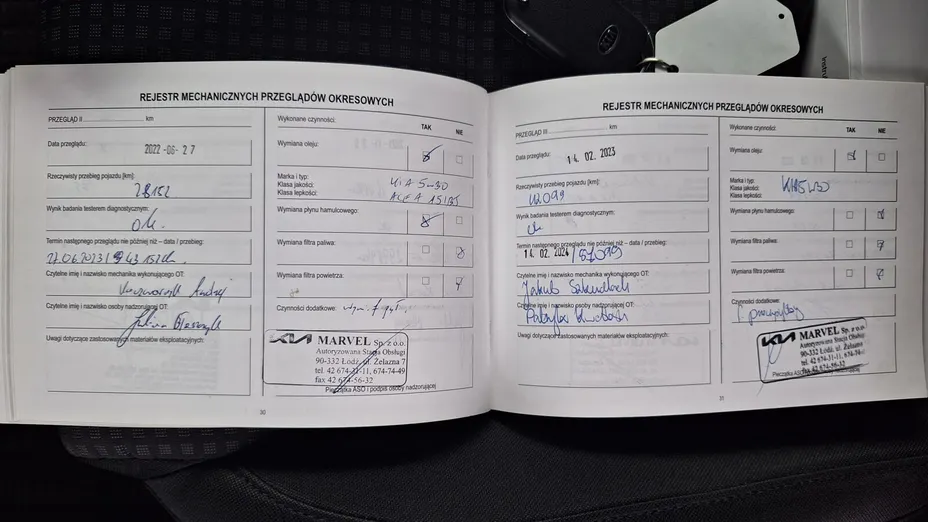 REJESTR MECHANICZNYCH PRZEGLĄDÓW OKRESOWYCH
PRZEGLĄD II km
Data przeglądu:
2022-06-27
Rzeczywisty przebieg pojazdu [km]:
28152
Wynik badania testerem diagnostycznym:
Ok.
Termin następnego przeglądu nie później niż – data / przebieg:
27.06.2023/ 43 152
Czytelne imię i nazwisko mechanika wykonującego OT:
Andrzej
Czytelne imię i nazwisko osoby nadzorującej OT:
Uwagi dotyczące zastosowanych materiałów eksploatacyjnych:
Wykonane czynności:
TAK NIE
Wymiana oleju:
Marka i typ: KIA 5W30
Klasa jakości:
Klasa lepkości:
Wymiana płynu hamulcowego:
Wymiana filtra paliwa:
Wymiana filtra powietrza:
Czynności dodatkowe:
KIA MARVEL Sp. z o.o.
Autoryzowana Stacja Obsługi
90-332 Łódź, ul. Żelazna 7
tel. 42 674-31-11, 674-74-49
fax 42 674-56-32
Pieczątka ASO i podpis osoby nadzorującej
30
REJESTR MECHANICZNYCH PRZEGLĄDÓW OKRESOWYCH
PRZEGLĄD III km
Data przeglądu:
14. 02. 2023
Rzeczywisty przebieg pojazdu [km]:
42099
Wynik badania testerem diagnostycznym:
Termin następnego przeglądu nie później niż – data / przebieg:
14. 02. 2024 / 57099
Czytelne imię i nazwisko mechanika wykonującego OT:
Jakub
Czytelne imię i nazwisko osoby nadzorującej OT:
Uwagi dotyczące zastosowanych materiałów eksploatacyjnych:
Wykonane czynności:
TAK NIE
Wymiana oleju:
Marka i typ:
Klasa jakości: KIA 5W30
Klasa lepkości:
Wymiana płynu hamulcowego:
Wymiana filtra paliwa:
Wymiana filtra powietrza:
Czynności dodatkowe:
KIA MARVEL Sp. z o.o.
Autoryzowana Stacja Obsługi
90-332 Łódź, ul. Żelazna
tel. 42 674-31-11, 674-74-
fax 42 674-56-32
31
KIA